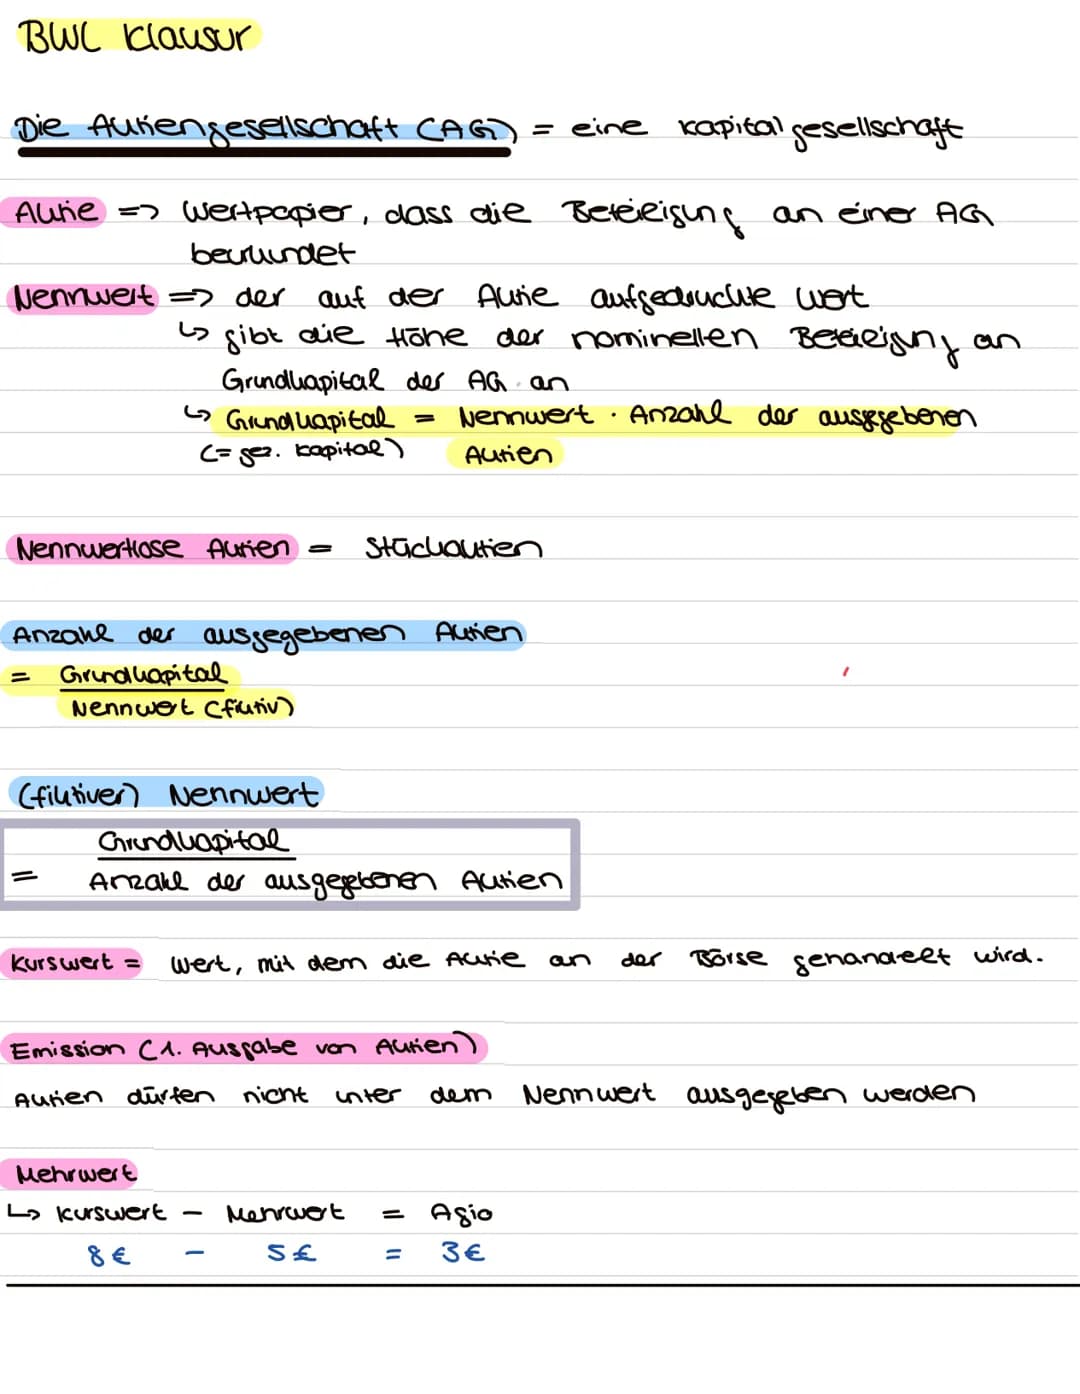 BWL Klausur
Die Aktiengesellschaft (AG) = eine Kapitalgesellschaft
Aktie => Wertpapier, dass die Beteiligung an einer AG
bekundet
Nennwert => der auf der Aktie aufgedruckte Wert
↳ gibt die Höhe der nominellen Beteiligung an
Grundkapital der AG an
↳ Grundkapital = Nennwert · Anzahl der ausgegebenen
(= gez. Kapital) Aktien
Nennwertlose Aktien = Stückaktien
Anzahl der ausgegebenen Aktien
= Grundkapital
Nennwert (fiktiv)
(fiktiver) Nennwert
Grundkapital
= Anzahl der ausgegebenen Aktien
Kurswert = Wert, mit dem die Aktie an der Börse gehandelt wird.
Emission (1. Ausgabe von Aktien)
Aktien dürfen nicht unter dem Nennwert ausgegeben werden
Mehrwert
↳ Kurswert - Mehrwert = Agio
8€ - 5€ = 3€